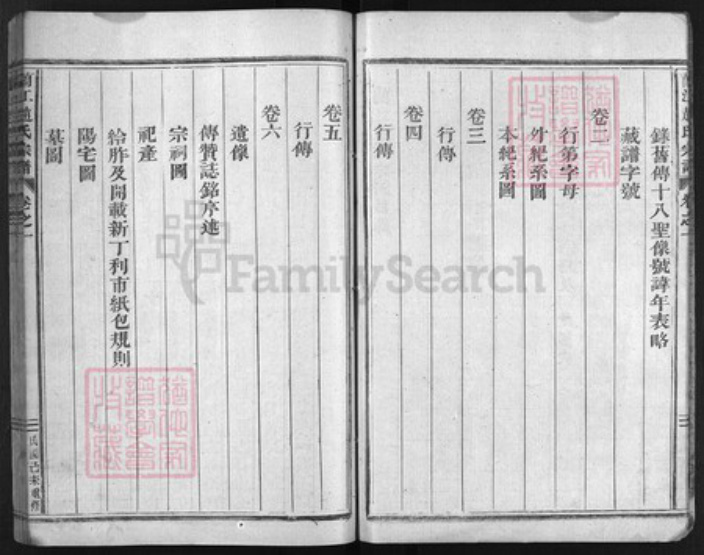 錄舊傳十八聖像號諱年表略
藏譜字號
卷二
行第字母
外紀系圖
本紀系圖
卷三
行傳
卷四
行傳
卷五
行傳
卷六
遺像
傳贊誌銘序述
宗祠圖
祀產
給胙及開載新丁利市紙包規則
陽宅圖
墓圖
卷之一
三
民國己未重修
FamilySearch